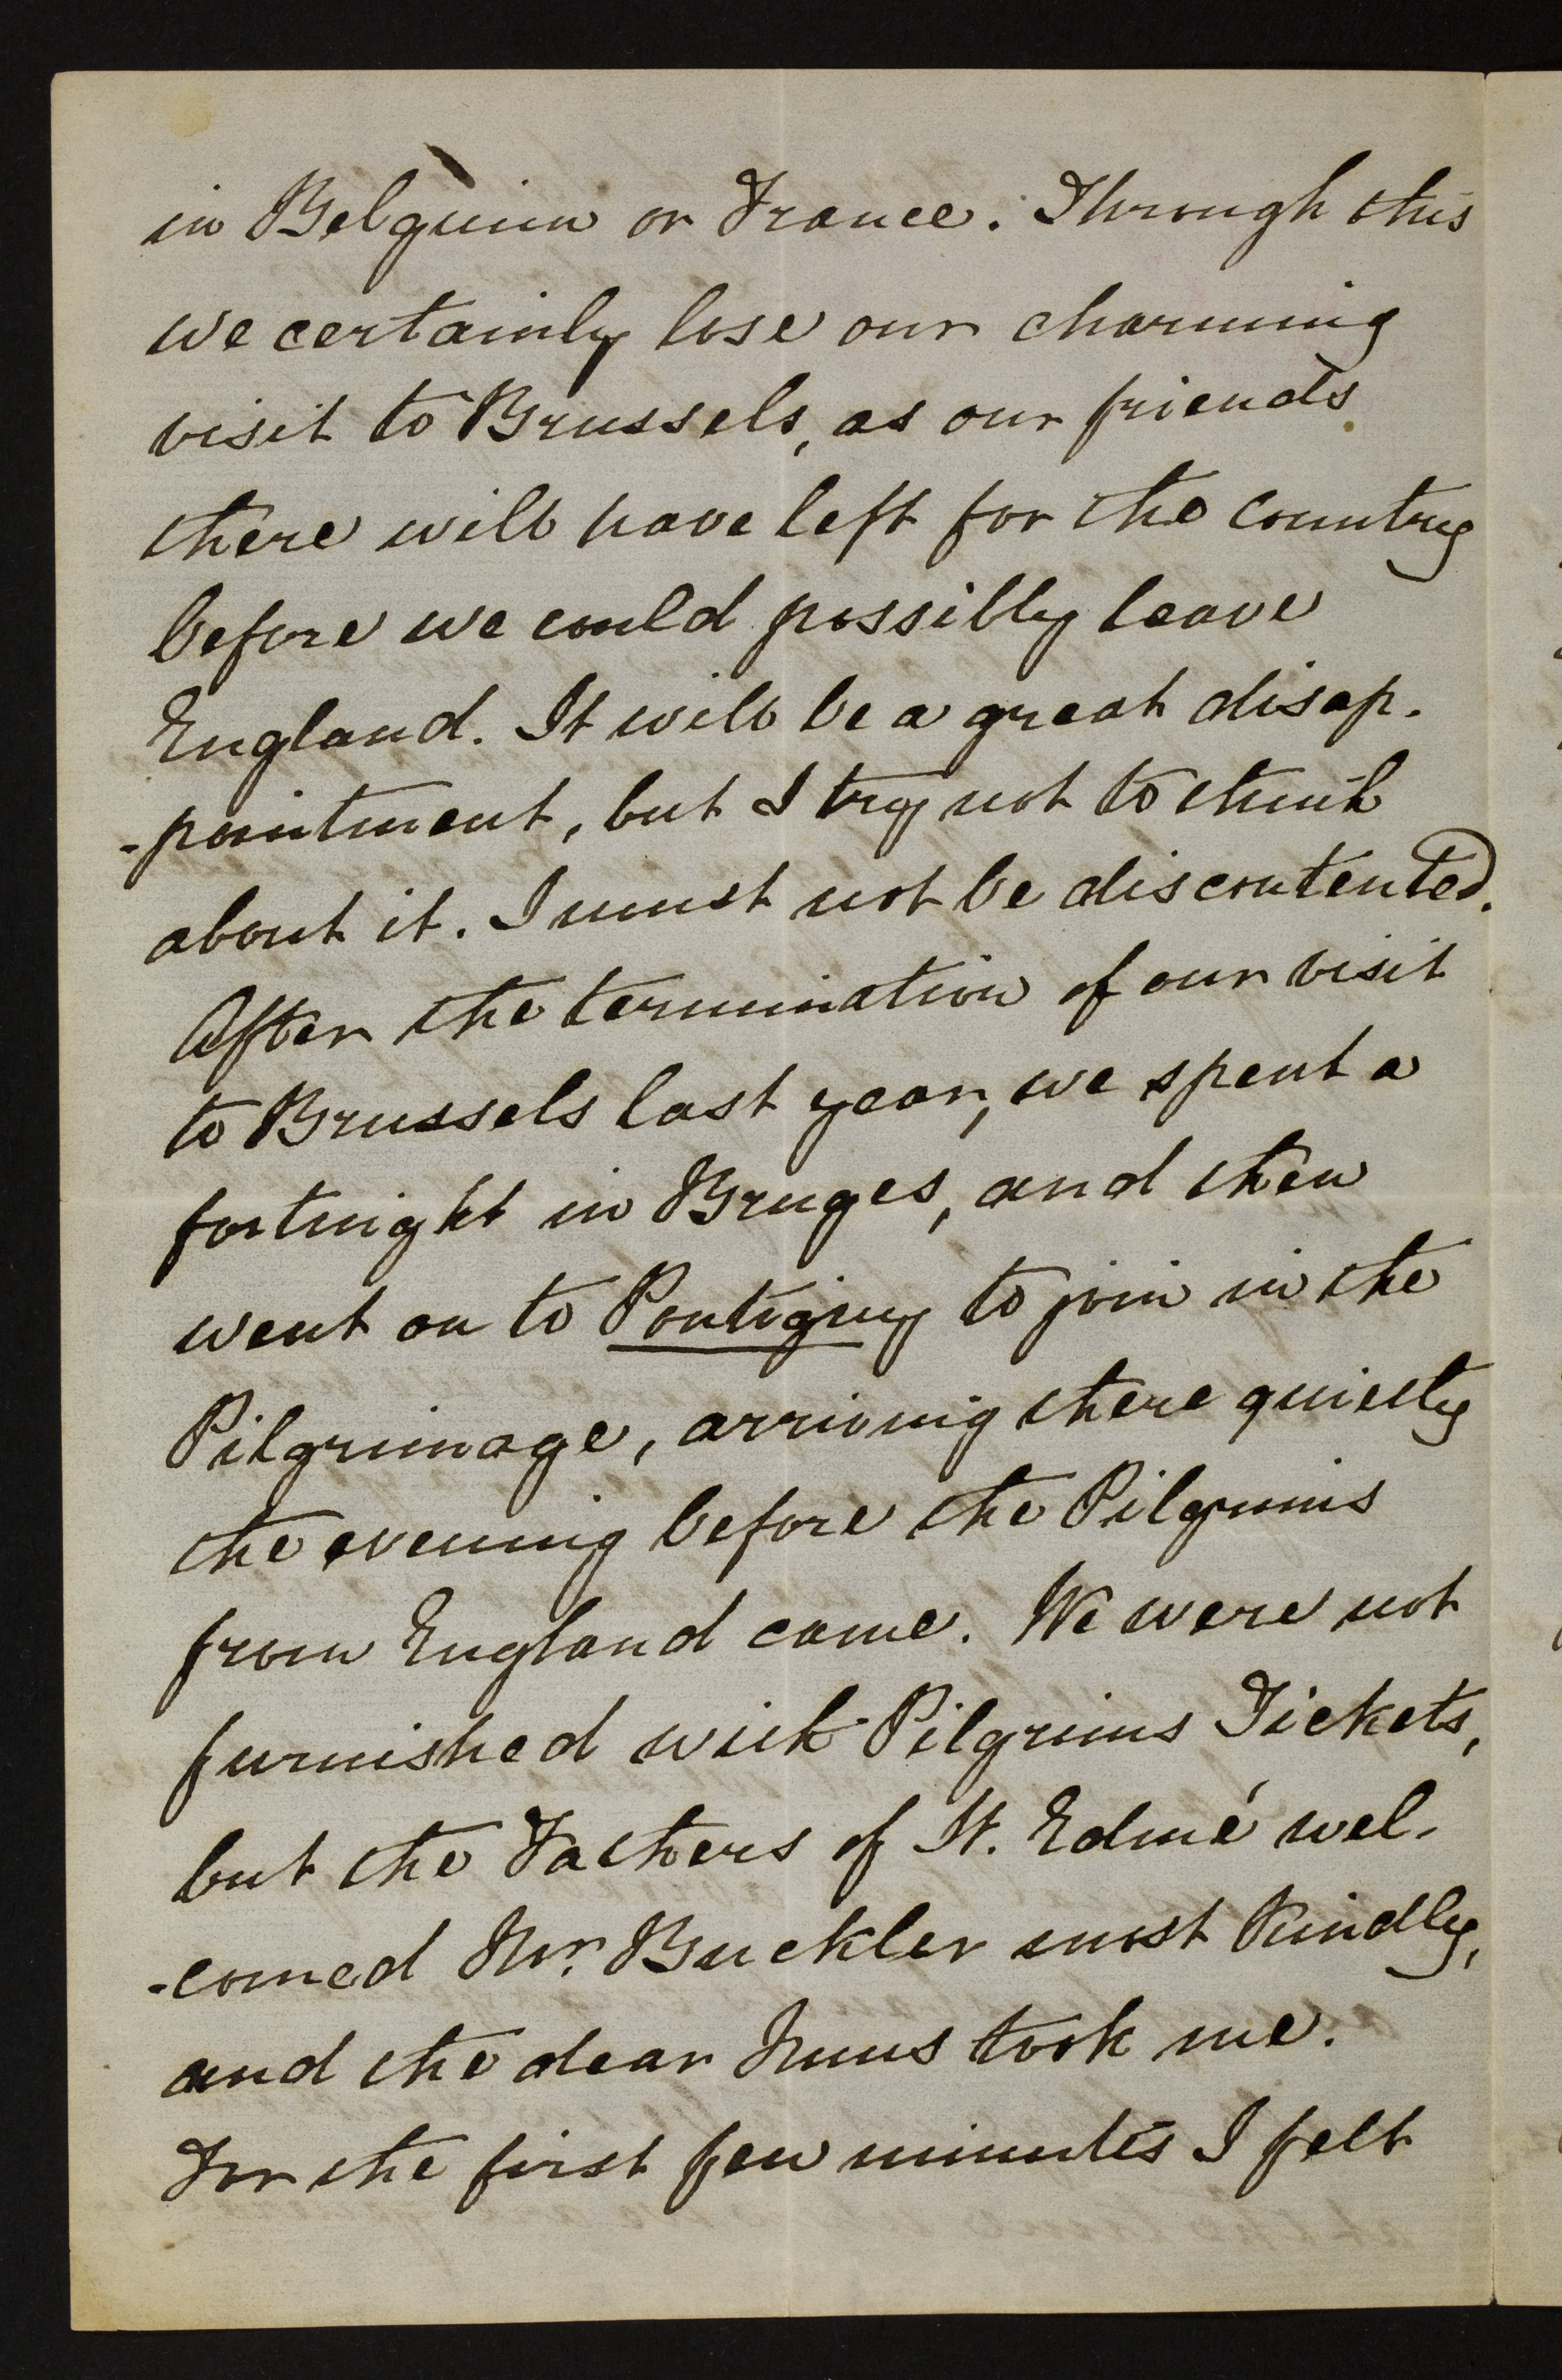 in Belguim or France. Through this
we certainly lose our charming
visit to Brussels, as our friends
there will have left for the country
before we could possibly leave
England. It will be a great disap-
-pointment, but I try not to think
about it. I must not be discontented.
After the termination of our visit
to Brussels last year, we spent a
fortnight in Bruges, and then
went on to Pontigny to join in the
Pilgrimage, arriving there quietly
the evening before the Pilgrims
from England came. We were not
furnished with Pilgrims Tickets,
but the Fathers of St. Edmé wel-
-comed Mr. Buckler most kindly,
and the dear Nuns took me.
For the first few minutes I felt